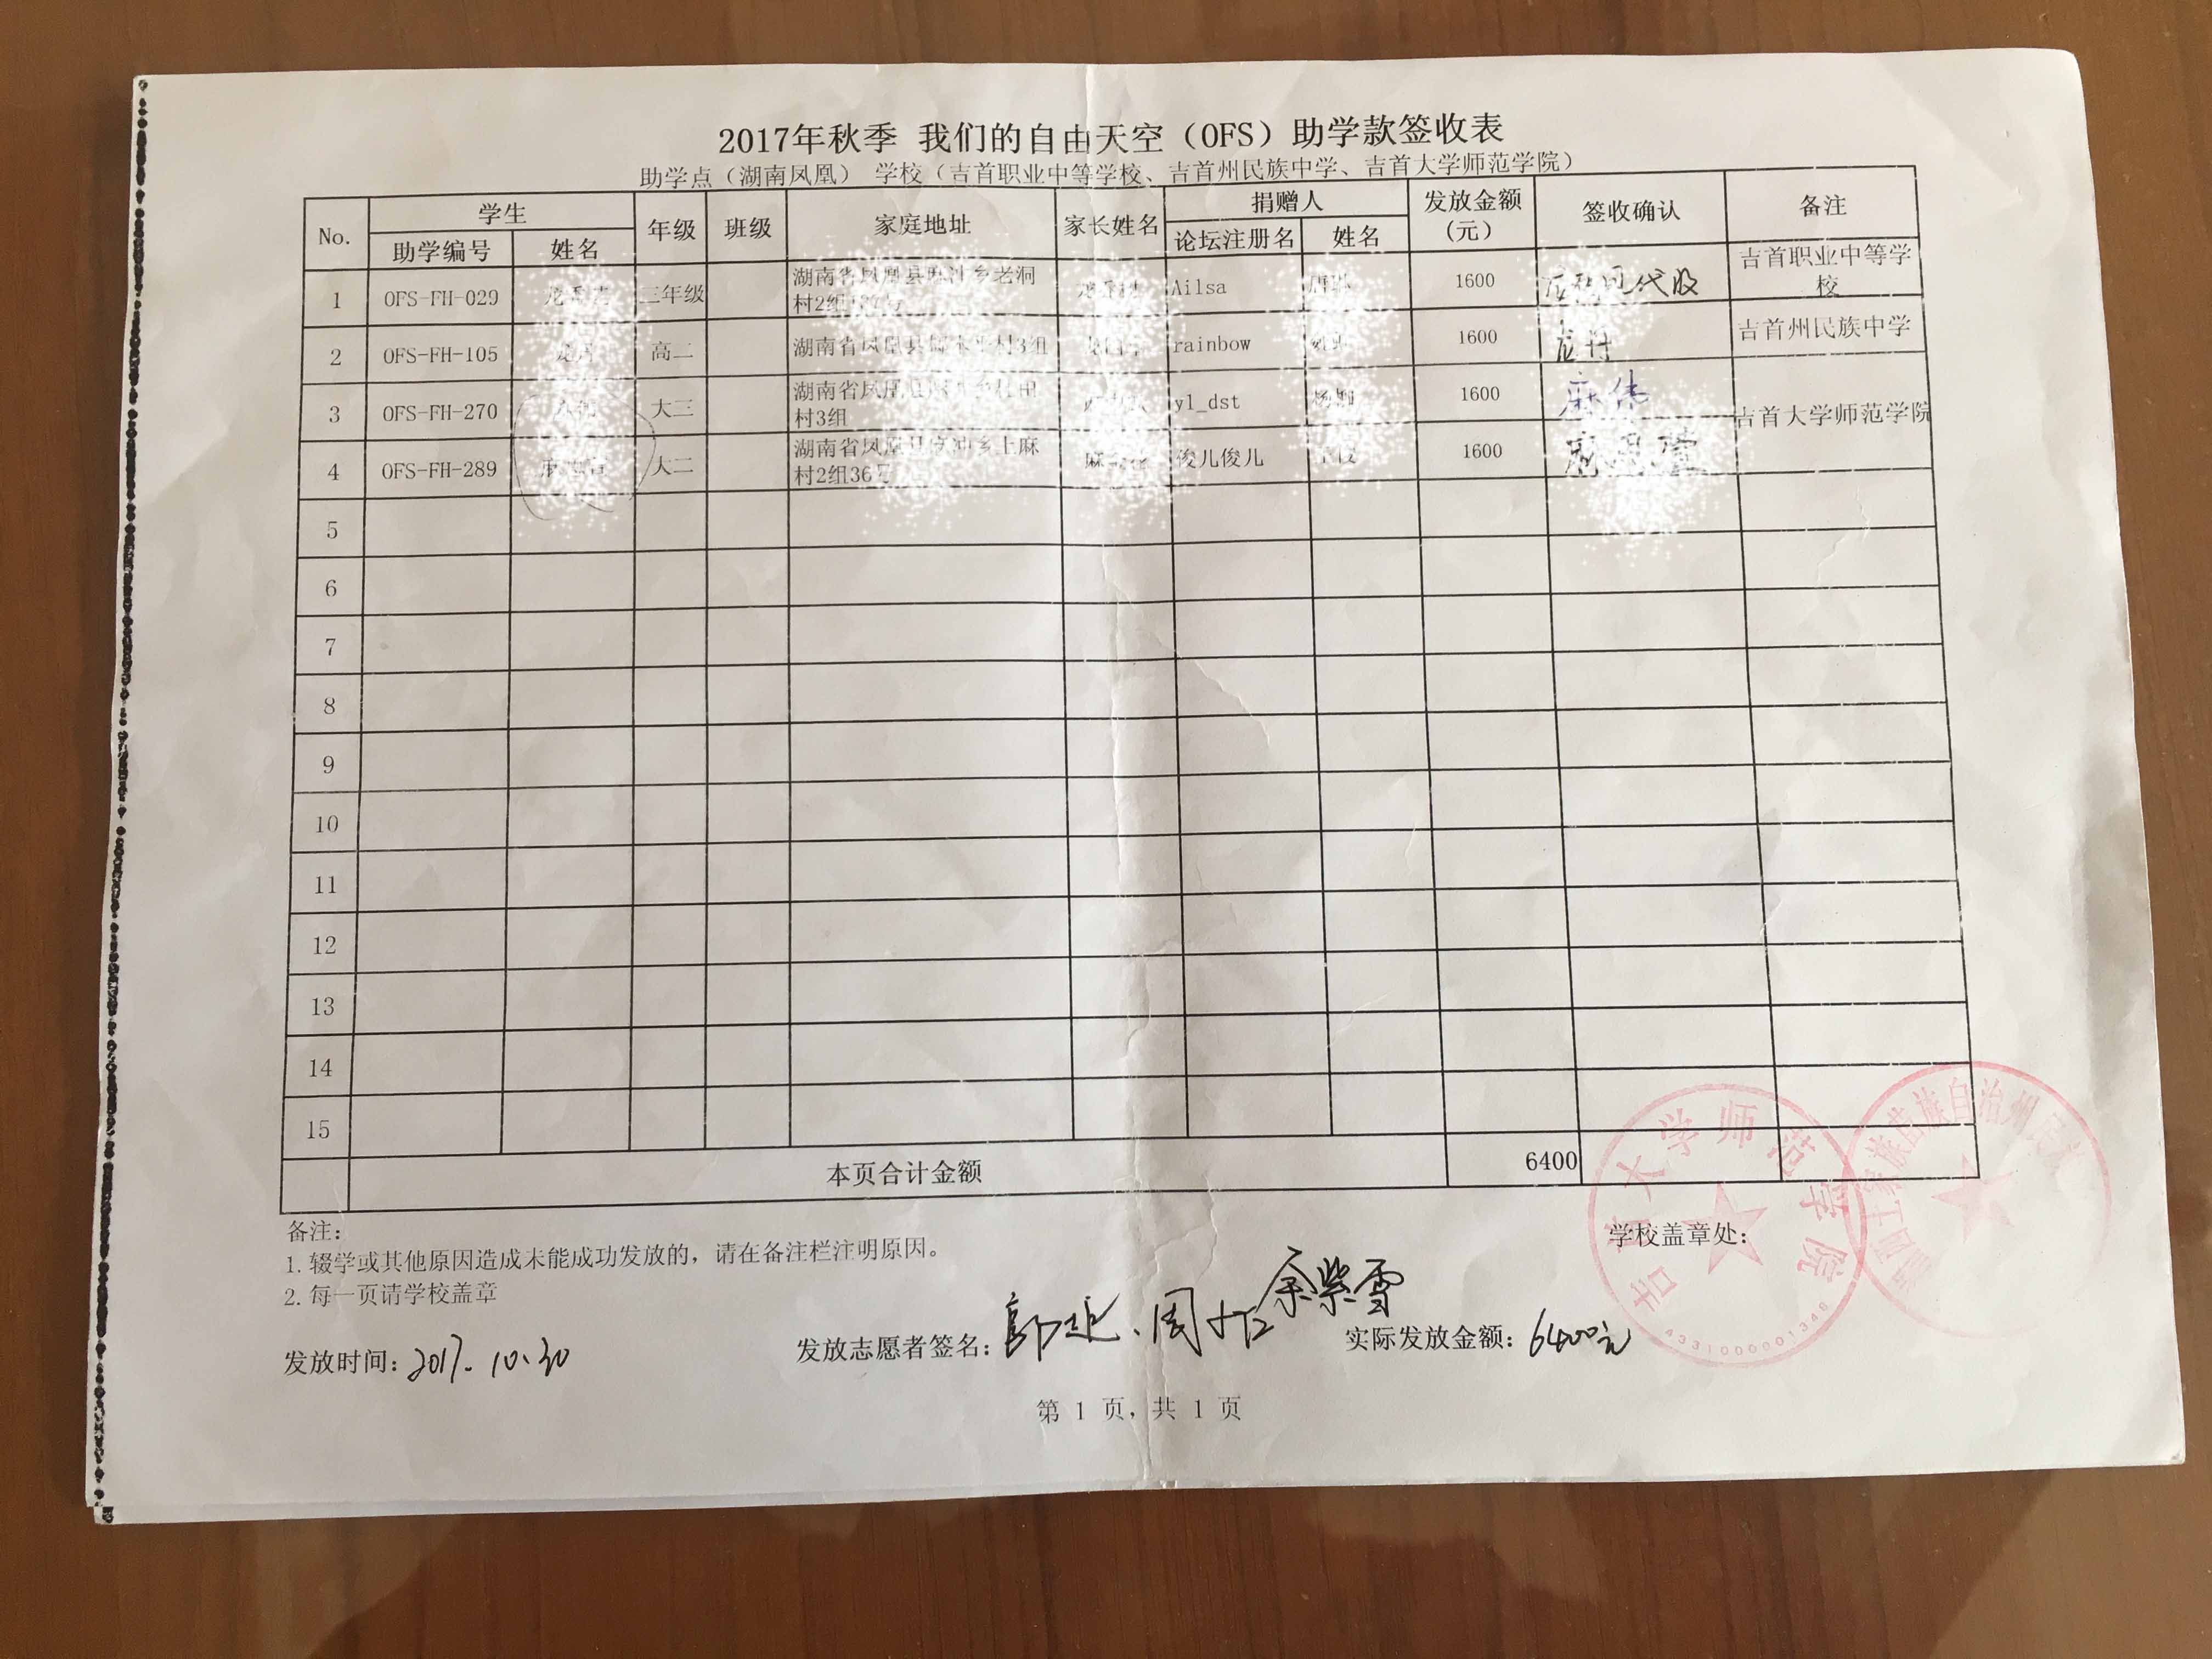 2017年秋季 我们的自由天空（OFS）助学款签收表
助学点（湖南凤凰） 学校（吉首职业中等学校、吉首州民族中学、吉首大学师范学院）
No. 学生 年级 班级 家庭地址 家长姓名 捐赠人 发放金额（元） 签收确认 备注
助学编号 姓名 论坛注册名 姓名
1 OFS-FH-029 三年级 湖南省凤凰县 乡老洞村2组 Ailsa 1600 代收 吉首职业中等学校
2 OFS-FH-105 高二 湖南省凤凰县 村3组 rainbow 1600 吉首州民族中学
3 OFS-FH-270 大三 湖南省凤凰县 村3组 yl_dst 1600 吉首大学师范学院
4 OFS-FH-289 大二 湖南省凤凰县 乡上麻村2组36号 俊儿俊儿 1600
5
6
7
8
9
10
11
12
13
14
15
本页合计金额 6400
备注：
1. 辍学或其他原因造成未能成功发放的，请在备注栏注明原因。
2. 每一页请学校盖章
学校盖章处：
吉首大学师范学院
4331000001348
湘西土家族苗族自治州民族
发放时间：2017.10.30 发放志愿者签名： 余紫雪 实际发放金额：6400元
第 1 页，共 1 页